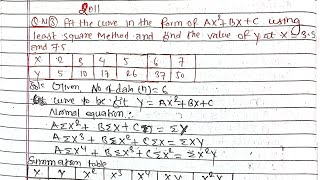 2011
Q.N.3) Fit the curve in the form of Ax²+Bx+C using
least square method and find the value of y at x = 3.5
and 7.5
X 2 3 4 5 6 7
Y 5 10 17 26 37 50
Given, No of data (n) = 6
curve to be fit Y = Ax²+Bx+C
Normal equation:
AΣx² + BΣx + C = ΣY
AΣx³ + BΣx² + CΣx = ΣXY
AΣx⁴ + BΣx³ + CΣx² = Σx²y
Summation table
X Y x² x³ x⁴ XY x²y